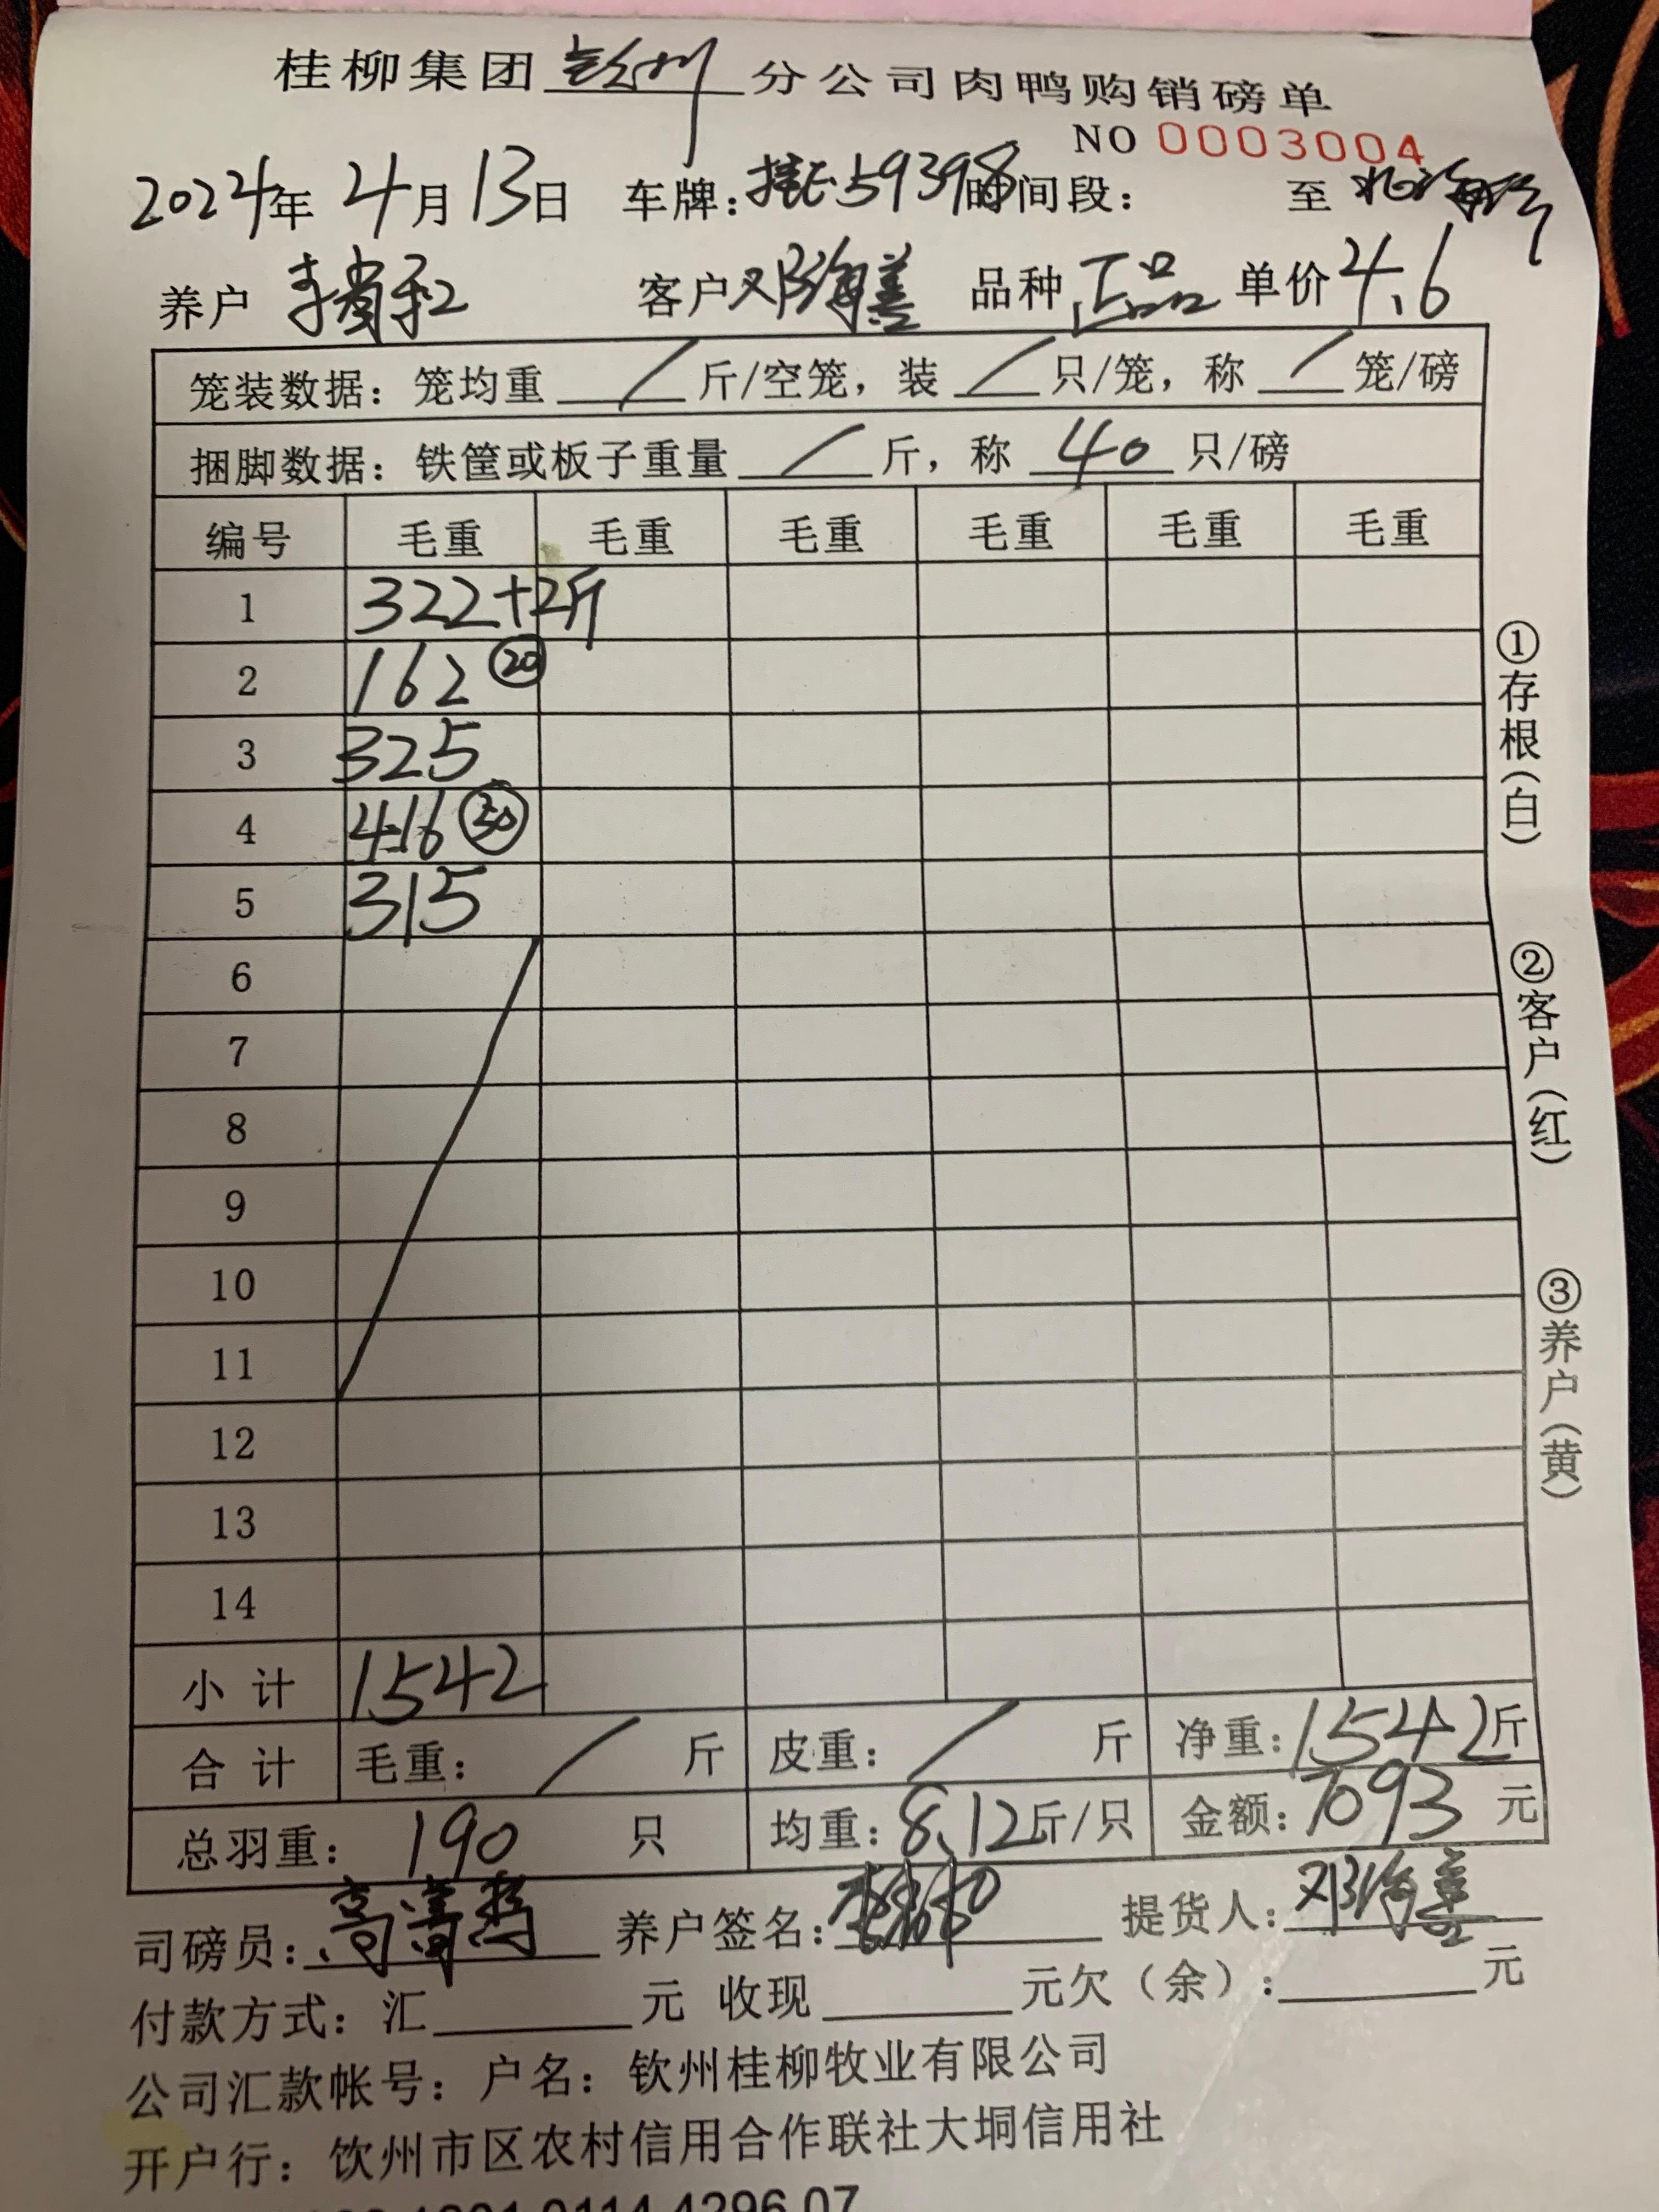 桂柳集团钦州分公司肉鸭购销磅单
NO 0003004
2024年 4月 13日 车牌：桂E59398 时间段： 至
养户 客户 邓海善 品种 正品 单价 4.6
笼装数据：笼均重 / 斤/空笼，装 / 只/笼，称 / 笼/磅
捆脚数据：铁筐或板子重量 / 斤，称 40 只/磅
编号 毛重 毛重 毛重 毛重 毛重 毛重
1 322+2斤
2 162 ⑳
3 325
4 416 ㊿
5 315
6
7
8
9
10
11
12
13
14
小计 1542
合计 毛重： / 斤 皮重： / 斤 净重：1542斤
总羽重： 190 只 均重：8.12斤/只 金额：7093 元
司磅员： 养户签名： 提货人：邓海善
付款方式：汇 元 收现 元欠（余）： 元
公司汇款帐号：户名：钦州桂柳牧业有限公司
开户行：钦州市区农村信用合作联社大垌信用社
①存根（白）
②客户（红）
③养户（黄）